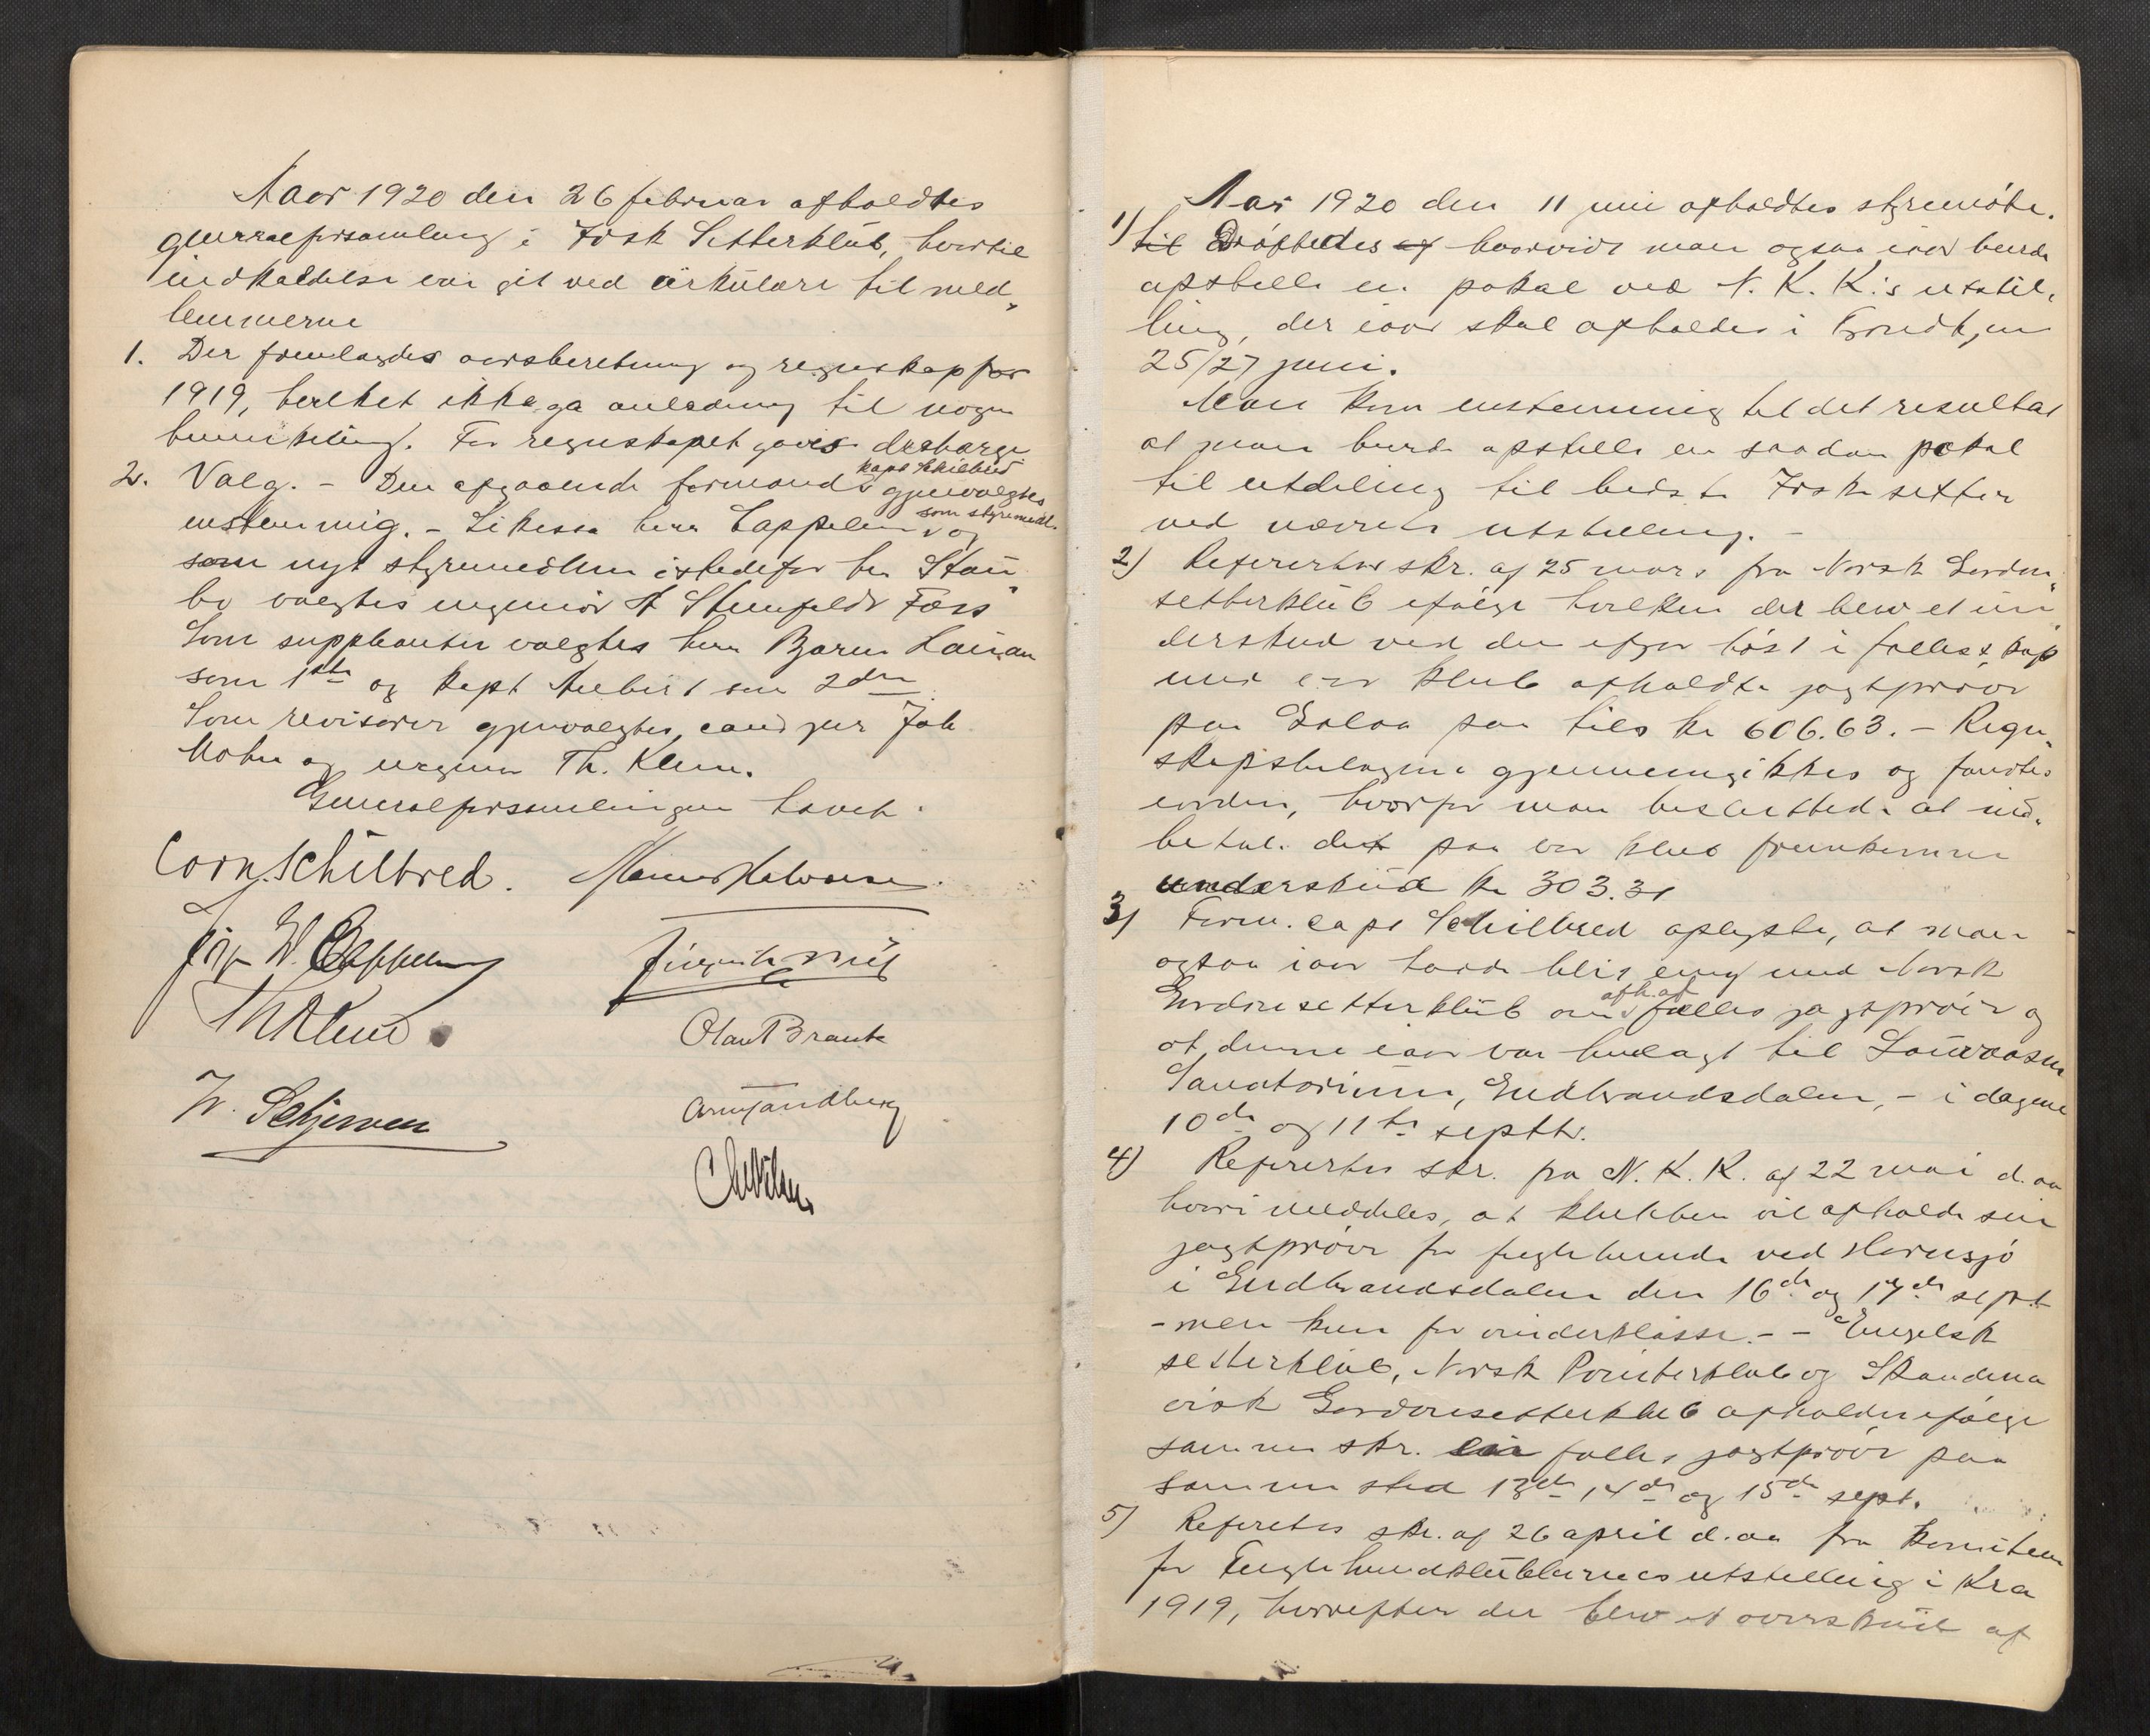 Aar 1920 den 26 februar afholdtes
generalforsamling i Irsk Setterklub, hvortil
indkaldelse var git ved cirkulære til med„
lemmerne
1. Der fremlagdes aarsberetning og regnskap for
1919, hvilket ikke ga anledning til nogen
bemerkning. For regnskapet gaves decharge
2. Valg. – Den afgaaende formand kapt Schilbred gjenvalgtes
enstemmig. – Likesaa herr Cappelen som styremedl. og
som nyt styremedlem istedetfor hr
valgtes ingeniør Steenfeldt Foss
Som suppleanter valgtes herr Bjarne
som 1ste og kapt som 2den
Som revisorer gjenvalgtes cand jur Joh
Mohn og Th. Klem.
Generalforsamlingen hævet.
Corn. Schilbred.
Jørg W. Cappelen
Th Klem
Olaf Brante
Arne Sandberg
W. Schjerven
Aar 1920 den 11 juni afholdtes styremøte.
1) til Drøftedes af hvorvidt man ogsaa iaar burde
opstille en pokal ved N. K. K.'s utstil„
ling, der iaar skal afholdes i Trondhjem
25/27 juni.
Man kom enstemmig til det resultat
at man burde opstille en saadan pokal
til utdeling til bedste Irsk setter
ved nævnte utstilling. –
2) Refertes skr. af 25 mars fra Norsk Gordon„
setterklub ifølge hvilken der blev et un„
derskud ved den ifjor høst i fællesskap
med vor klub afholdte jagtprøve
paa Golaa paa tils kr 606.63. – Regn„
skapsbilagene gjennemgikkes og fandtes
iorden, hvorfor man besluttede at ind„
betale det paa vor klub fremkomne
underskud kr 303.31
3) Form. capt Schilbred oplyste, at man
ogsaa iaar havde blit enig med Norsk
Gordonsetterklub om afh. af fælles jagtprøve og
at denne iaar var henlagt til
Sanatorium, Gudbrandsdalen, – i dagene
10de og 11te septbr.
4) Refertes skr. fra N. K. K. af 22 mai d. aa
hvori meddeles, at klubben vil afholde sin
jagtprøve for fuglehunde ved Hornsjø
i Gudbrandsdalen den 16de og 17de sept
– men kun for vinderklasse. – – Engelsk
setterklub, Norsk Pointerklub og Skandina
visk Gordonsetterklub afholder ifølge
samme skr. fælles jagtprøve paa
samme sted 13de, 14de og 15de sept.
5) Refertes skr. af 26 april d. aa fra komiteen
for Fuglehundklubbernes utstilling i Kra
1919, hvorefter der blev et overskud af